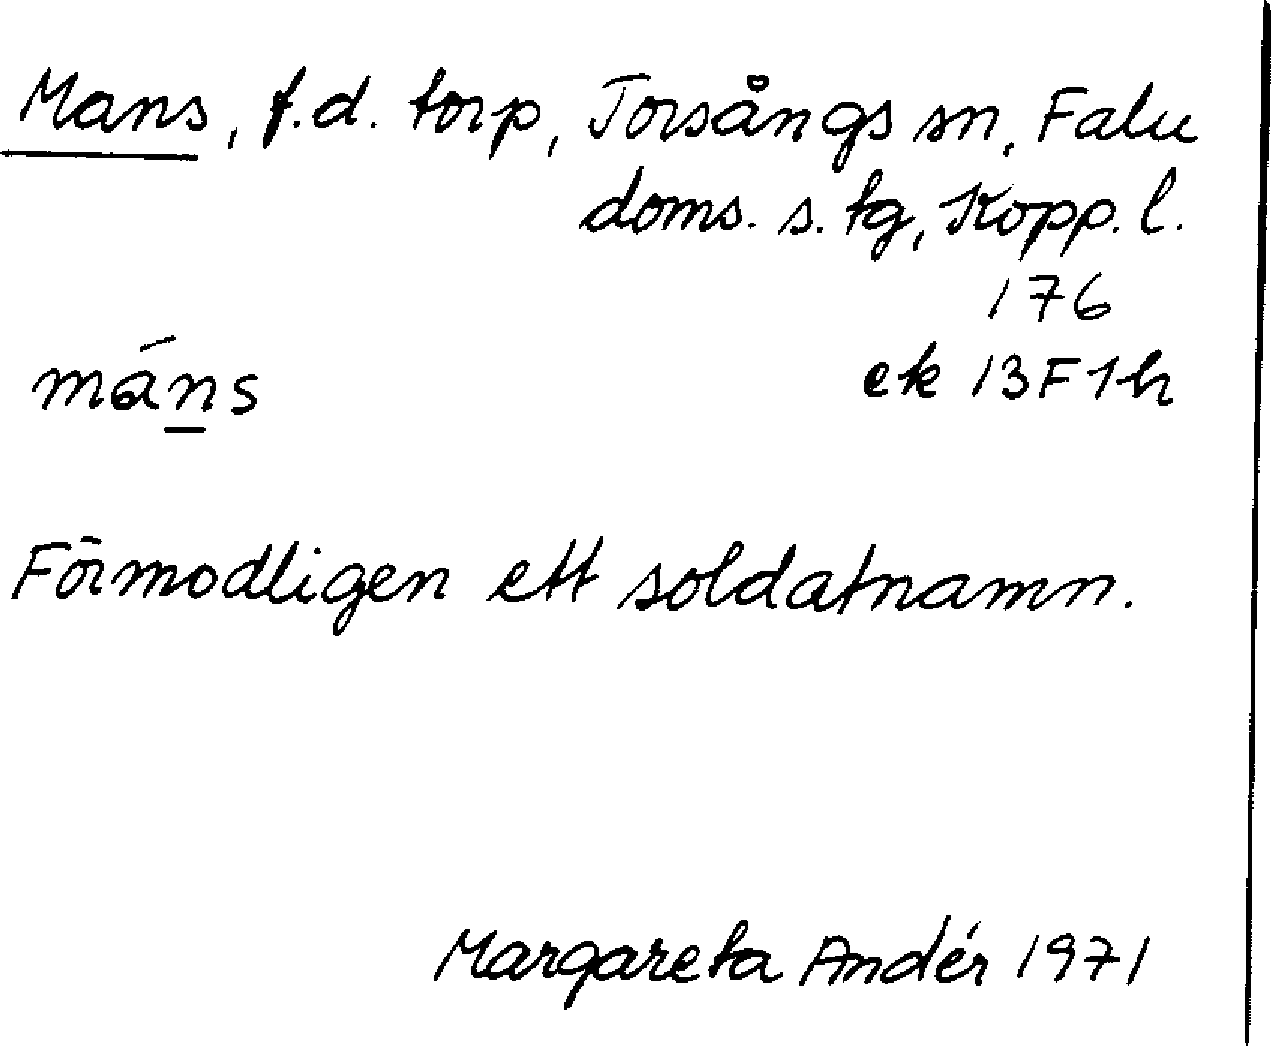 Mans, f.d. torp, Torsångs sn, Falu
doms. s. tg, Kopp. l.
176
máns
ek 13F1h
Förmodligen ett soldatnamn.
Margareta Andér 1971